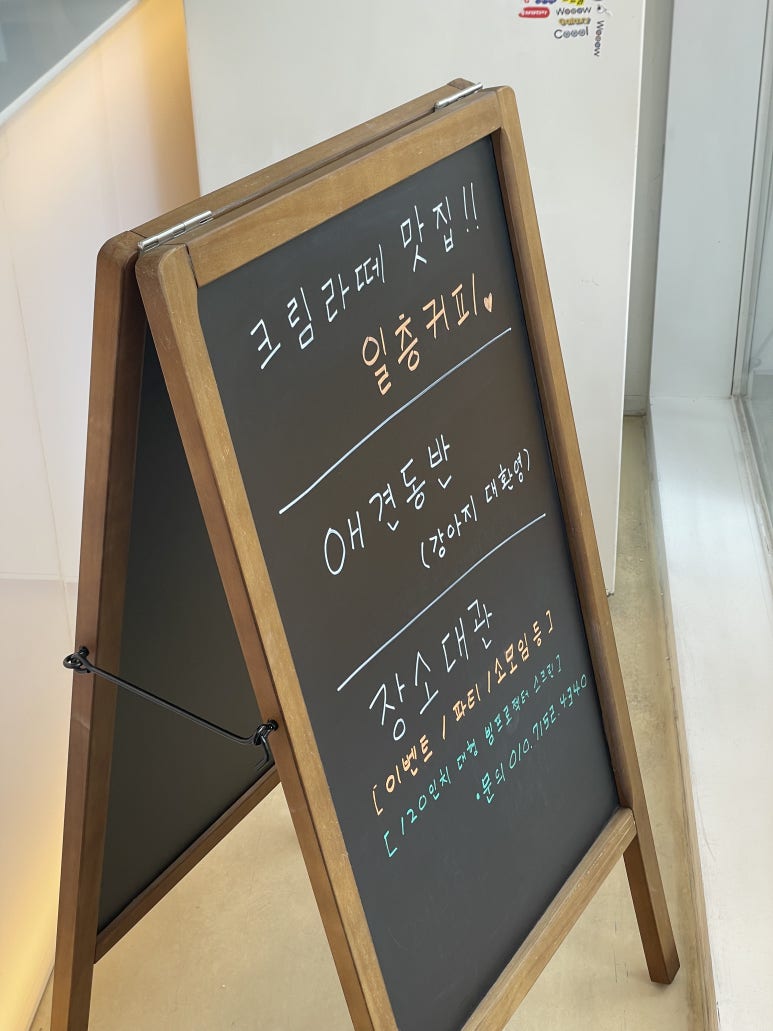 Wooow
Galaxy
Coool
Wooow
크림라떼 맛집!!
일층커피♥
애견동반
(강아지 대환영)
장소대관
[이벤트 / 파티 / 소모임 등]
[120인치 대형 빔프로젝터 스크린]
·문의 010.7152.4340